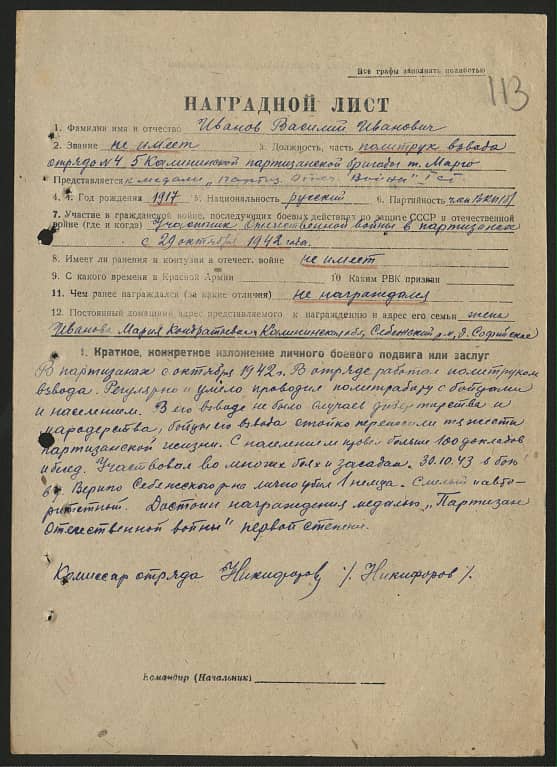 Все графы заполнять полностью
113
НАГРАДНОЙ ЛИСТ
1. Фамилия имя и отчество Иванов Василий Иванович
2. Звание не имеет 3. Должность, часть политрук взвода
отряда № 4 5 Калининской партизанской бригады т. Марго
Представляется к медали „Партиз. Отеч. Войны" I ст.
4. Год рождения 1917 5. Национальность русский 6. Партийность член ВКП(б)
7. Участие в гражданской войне, последующих боевых действиях по защите СССР и отечественной
войне (где и когда) Участник Отечественной войны в партизанах
с 29 октября 1942 года.
8. Имеет ли ранения и контузии в отечест. войне не имеет
9. С какого времени в Красной Армии
10 Каким РВК призван
11. Чем ранее награждался (за какие отличия) не награждался
12. Постоянный домашний адрес представляемого к награждению и адрес его семьи жена
Иванова Мария Кондратьевна Калининская обл, Себежский р-н, д. Софийское
I. Краткое, конкретное изложение личного боевого подвига или заслуг
В партизанах с октября 1942 г. В отряде работал политруком
взвода. Регулярно и умело проводил политработу с бойцами
и населением. В его взводе не было случаев дизертирства и
мародерства, бойцы его взвода стойко переносили тяжести
партизанской жизни. С населением провел больше 100 докладов
и бесед. Участвовал во множе боях и засадах. 30.10.43 в бою
в д. Себежского р-на лично убил 1 немца. Смелый и авто-
ритетный. Достоин награждения медалью „Партизан
Отечественной войны" первой степени.
Комиссар отряда Никифоров /Никифоров/.
Командир (Начальник)